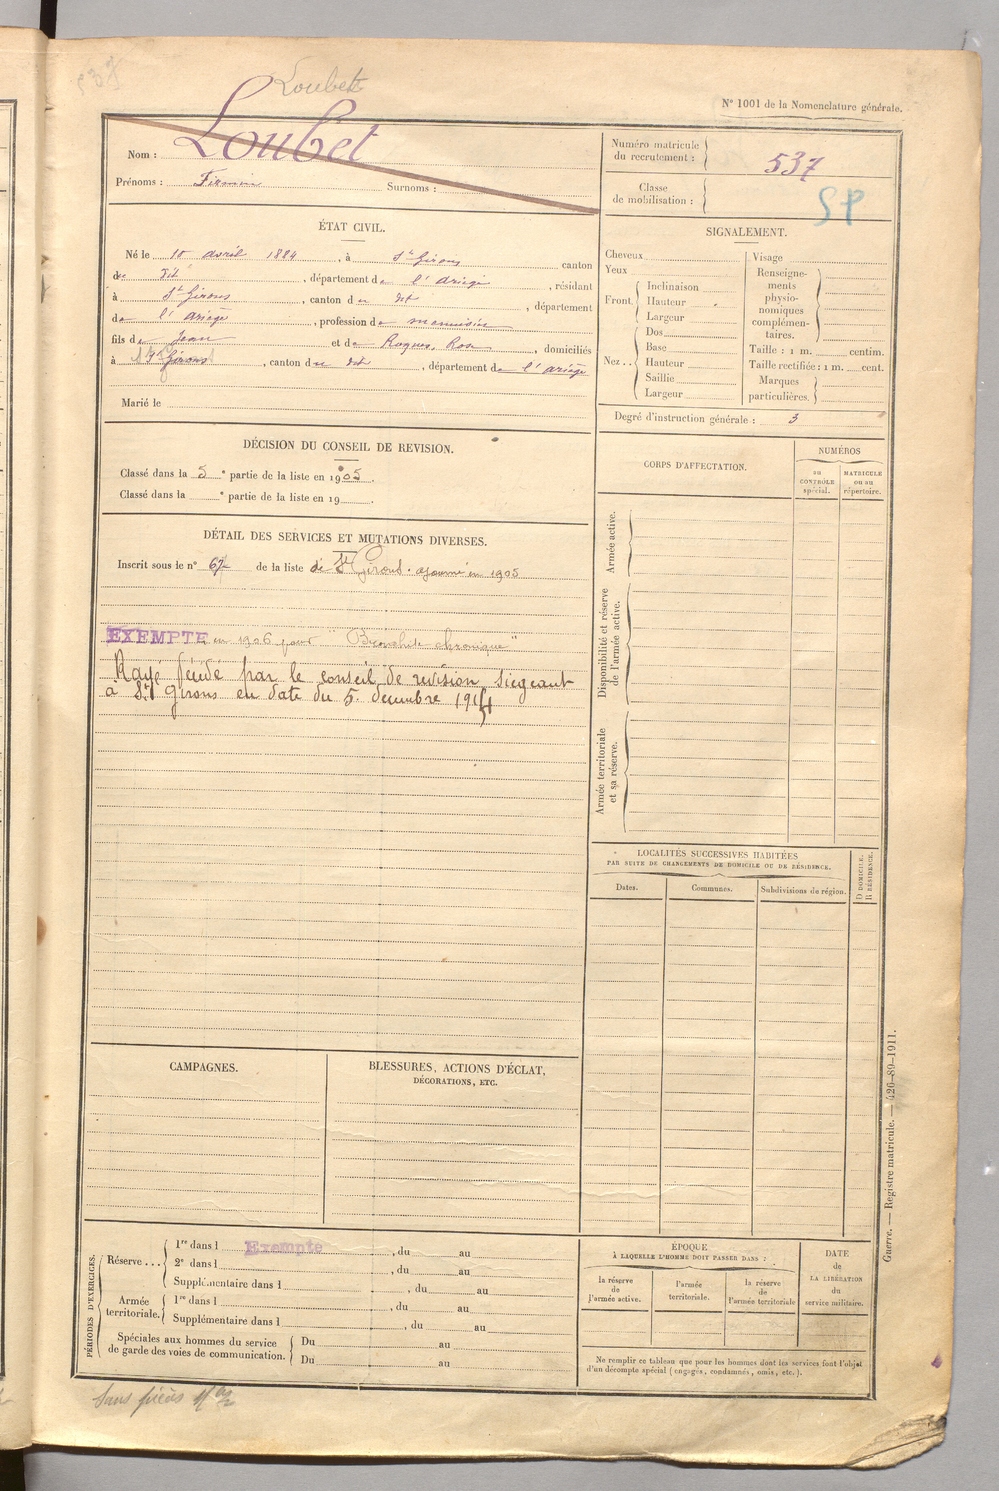 537
Loubet
N° 1001 de la Nomenclature générale.
Nom : Loubet
Prénoms : Firmin Surnoms :
Numéro matricule du recrutement : 537
Classe de mobilisation :
SP
ÉTAT CIVIL.
Né le 10 avril 1884, à St Girons canton
de dit, département de l'ariège, résidant
à St Girons, canton du dit, département
de l'ariège, profession de menuisier
fils de Jean et de Roques, Rose, domiciliés
à St Girons, canton du dit, département de l'ariège
Marié le
SIGNALEMENT.
Cheveux
Yeux
Front
Inclinaison
Hauteur
Largeur
Nez
Dos
Base
Hauteur
Saillie
Largeur
Visage
Renseignements physionomiques complémentaires.
Taille : 1 m. centim.
Taille rectifiée : 1 m. cent.
Marques particulières.
Degré d'instruction générale : 3
DÉCISION DU CONSEIL DE REVISION.
Classé dans la 5 e partie de la liste en 1905.
Classé dans la e partie de la liste en 19
DÉTAIL DES SERVICES ET MUTATIONS DIVERSES.
Inscrit sous le n° 67 de la liste de St Girons. ajourné en 1905
EXEMPTE en 1906 pour "Bronchite chronique"
Rayé décédé par le conseil de revision siégeant
à St Girons en date du 5 decembre 1914
CORPS D'AFFECTATION.
NUMÉROS
au CONTRÔLE spécial.
MATRICULE ou au répertoire.
Armée active.
Disponibilité et réserve de l'armée active.
Armée territoriale et sa réserve.
LOCALITÉS SUCCESSIVES HABITÉES
PAR SUITE DE CHANGEMENTS DE DOMICILE OU DE RÉSIDENCE.
Dates.
Communes.
Subdivisions de région.
D DOMICILE.
R RÉSIDENCE.
CAMPAGNES.
BLESSURES, ACTIONS D'ÉCLAT,
DÉCORATIONS, ETC.
PÉRIODES D'EXERCICES.
Réserve
1re dans l Exempte, du au
2e dans l , du au
Supplémentaire dans l , du au
Armée territoriale.
1re dans l , du au
Supplémentaire dans l , du au
Spéciales aux hommes du service
de garde des voies de communication.
Du au
Du au
ÉPOQUE
À LAQUELLE L'HOMME DOIT PASSER DANS :
la réserve de l'armée active.
l'armée territoriale.
la réserve de l'armée territoriale
DATE de LA LIBÉRATION du service militaire.
Ne remplir ce tableau que pour les hommes dont les services font l'objet
d'un décompte spécial (engagés, condamnés, omis, etc.).
Guerre. — Registre matricule. — 426-89-1911.
Sans pièces